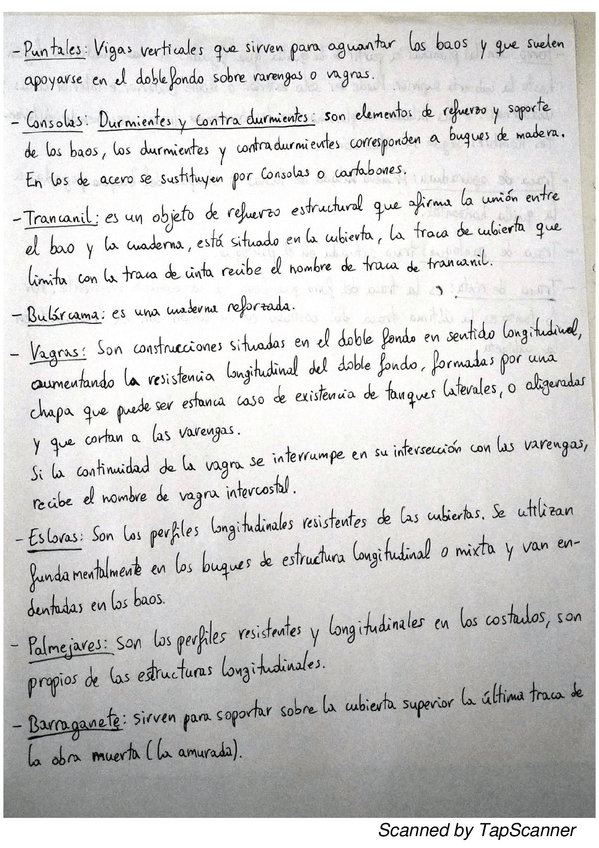 - Puntales: Vigas verticales que sirven para aguantar los baos y que suelen
apoyarse en el doblefondo sobre varengas o vagras.
- Consolas: Durmientes y contra durmientes: son elementos de refuerzo y soporte
de los baos, los durmientes y contradurmientes corresponden a buques de madera.
En los de acero se sustituyen por Consolas o cartabones.
- Trancanil: es un objeto de refuerzo estructural que afirma la unión entre
el bao y la cuaderna, está situado en la cubierta, la traca de cubierta que
limita con la traca de cinta recibe el nombre de traca de trancanil.
- Bulárcama: es una cuaderna reforzada.
- Vagras: Son construcciones situadas en el doble fondo en sentido longitudinal,
aumentando la resistencia longitudinal del doble fondo, formadas por una
chapa que puede ser estanca caso de existencia de tanques laterales, o aligeradas
y que cortan a las varengas.
Si la continuidad de la vagra se interrumpe en su intersección con las varengas,
recibe el nombre de vagra intercostal.
- Esloras: Son los perfiles longitudinales resistentes de las cubiertas. Se utilizan
fundamentalmente en los buques de estructura longitudinal o mixta y van en-
dentadas en los baos.
- Palmejares: Son los perfiles resistentes y longitudinales en los costados, son
propios de las estructuras longitudinales.
- Barraganete: sirven para soportar sobre la cubierta superior la última traca de
la obra muerta (la amurada).
Scanned by TapScanner